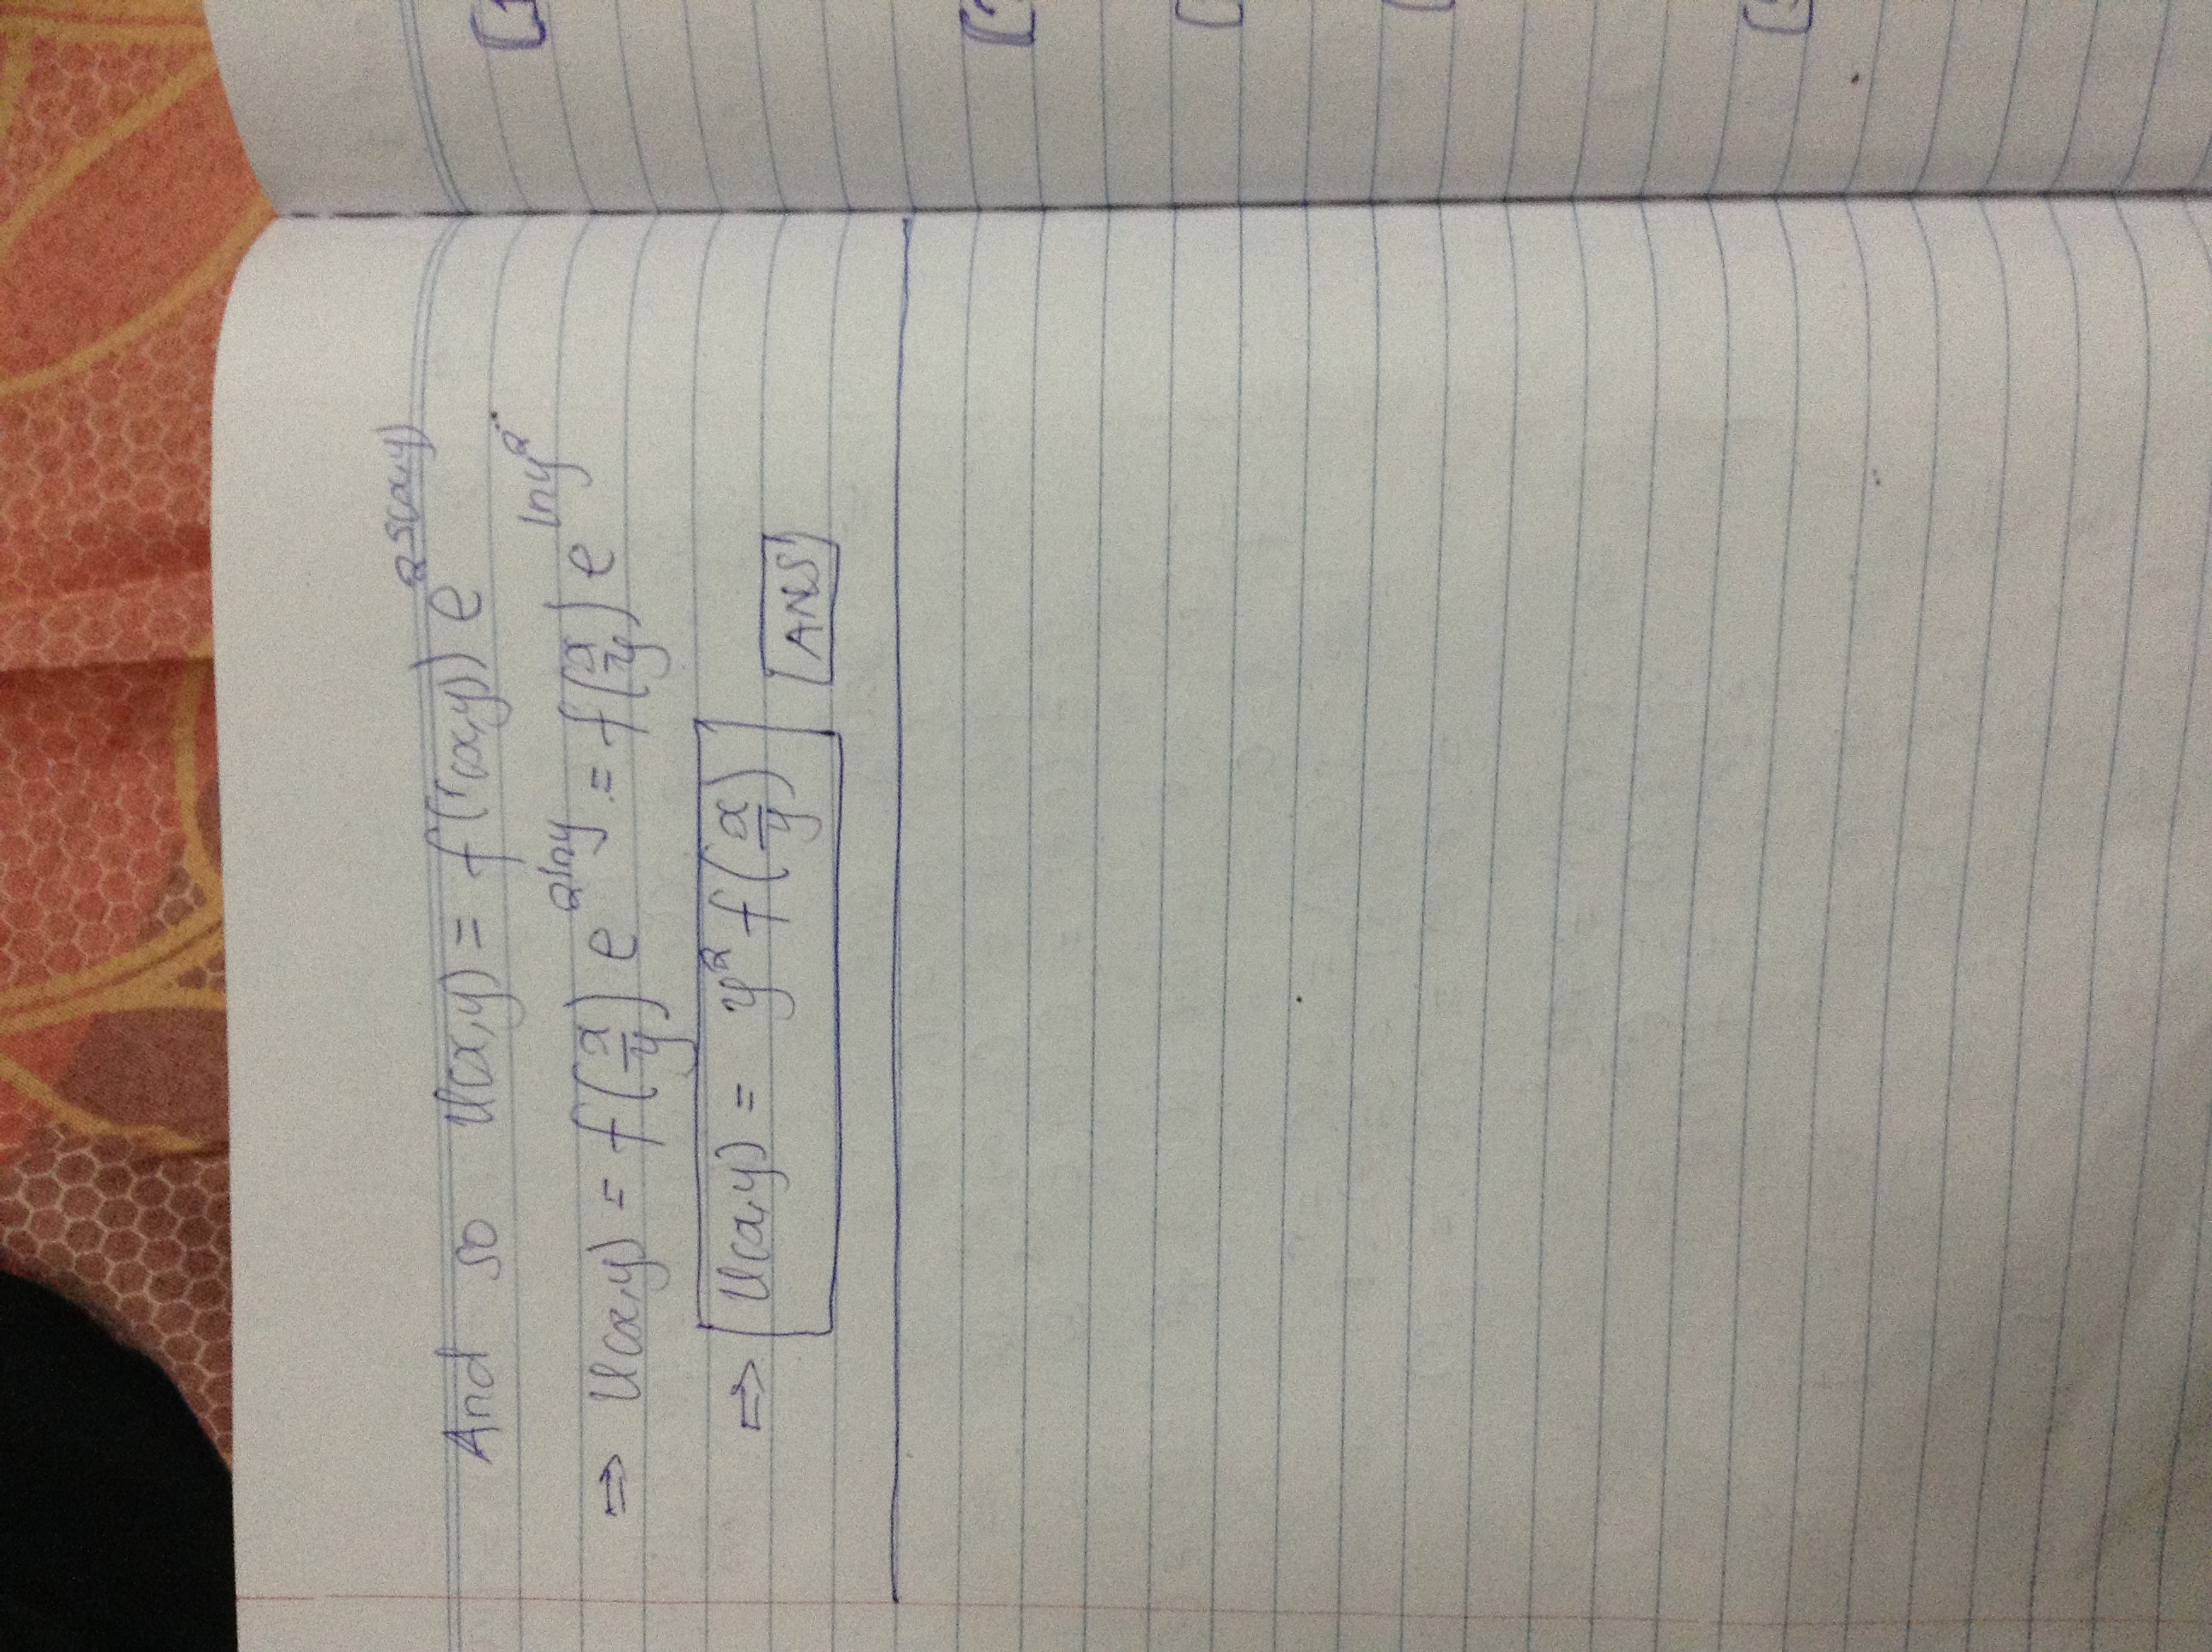 And so u(x,y) = f(r(x,y)) e^{2s(x,y)}
⇒ u(x,y) = f(x/y) e^{2lny} = f(x/y) e^{lny^2}
⇒ u(x,y) = y^2 f(x/y) ANS